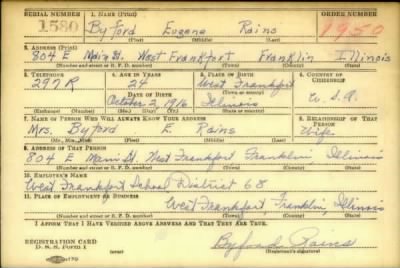 SERIAL NUMBER 1. NAME (Print) ORDER NUMBER
1580 Byford Eugene Rains 1950
(First) (Middle) (Last)
2. ADDRESS (Print)
804 E Main St. West Frankfort Franklin Illinois
(Number and street or R. F. D. number) (Town) (County) (State)
3. TELEPHONE 4. AGE IN YEARS 5. PLACE OF BIRTH 6. COUNTRY OF CITIZENSHIP
297R 24 West Frankfort
DATE OF BIRTH (Town or county)
October 2, 1916 Illinois U.S.A.
(Exchange) (Number) (Mo.) (Day) (Yr.) (State or country)
7. NAME OF PERSON WHO WILL ALWAYS KNOW YOUR ADDRESS 8. RELATIONSHIP OF THAT PERSON
Mrs. Byford E. Rains Wife
(Mr., Mrs., Miss) (First) (Middle) (Last)
9. ADDRESS OF THAT PERSON
804 E Main St. West Frankfort Franklin Illinois
(Number and street or R. F. D. number) (Town) (County) (State)
10. EMPLOYER'S NAME
West Frankfort School District 68
11. PLACE OF EMPLOYMENT OR BUSINESS
West Frankfort, Franklin, Illinois
(Number and street or R. F. D. number) (Town) (County) (State)
I AFFIRM THAT I HAVE VERIFIED ABOVE ANSWERS AND THAT THEY ARE TRUE.
REGISTRATION CARD
D. S. S. Form 1 (over) Byford Rains
(Registrant's signature)